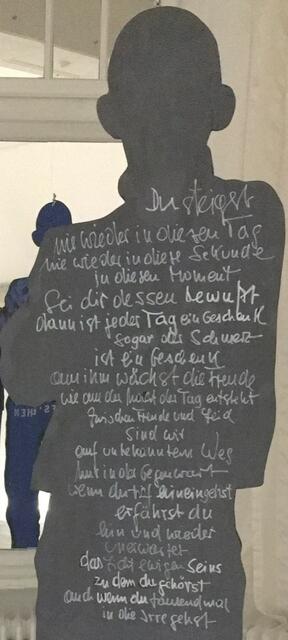 Du steigst
nie wieder in diesen Tag
nie wieder in diese Sekunde
in diesen Moment
Sei dir dessen bewußt
dann ist jeder Tag ein Geschenk
sogar der Schmerz
ist ein Geschenk
an ihm wächst die Freude
wie aus der Nacht der Tag entsteht
zwischen Freude und Leid
sind wir
auf unbekanntem Weg
nur in der Gegenwart
wenn du tief hineingehst
erfährst du
hin und wieder
unerwartet
das Licht ewigen Seins
zu dem du gehörst
auch wenn du tausendmal
in die Irre gehst